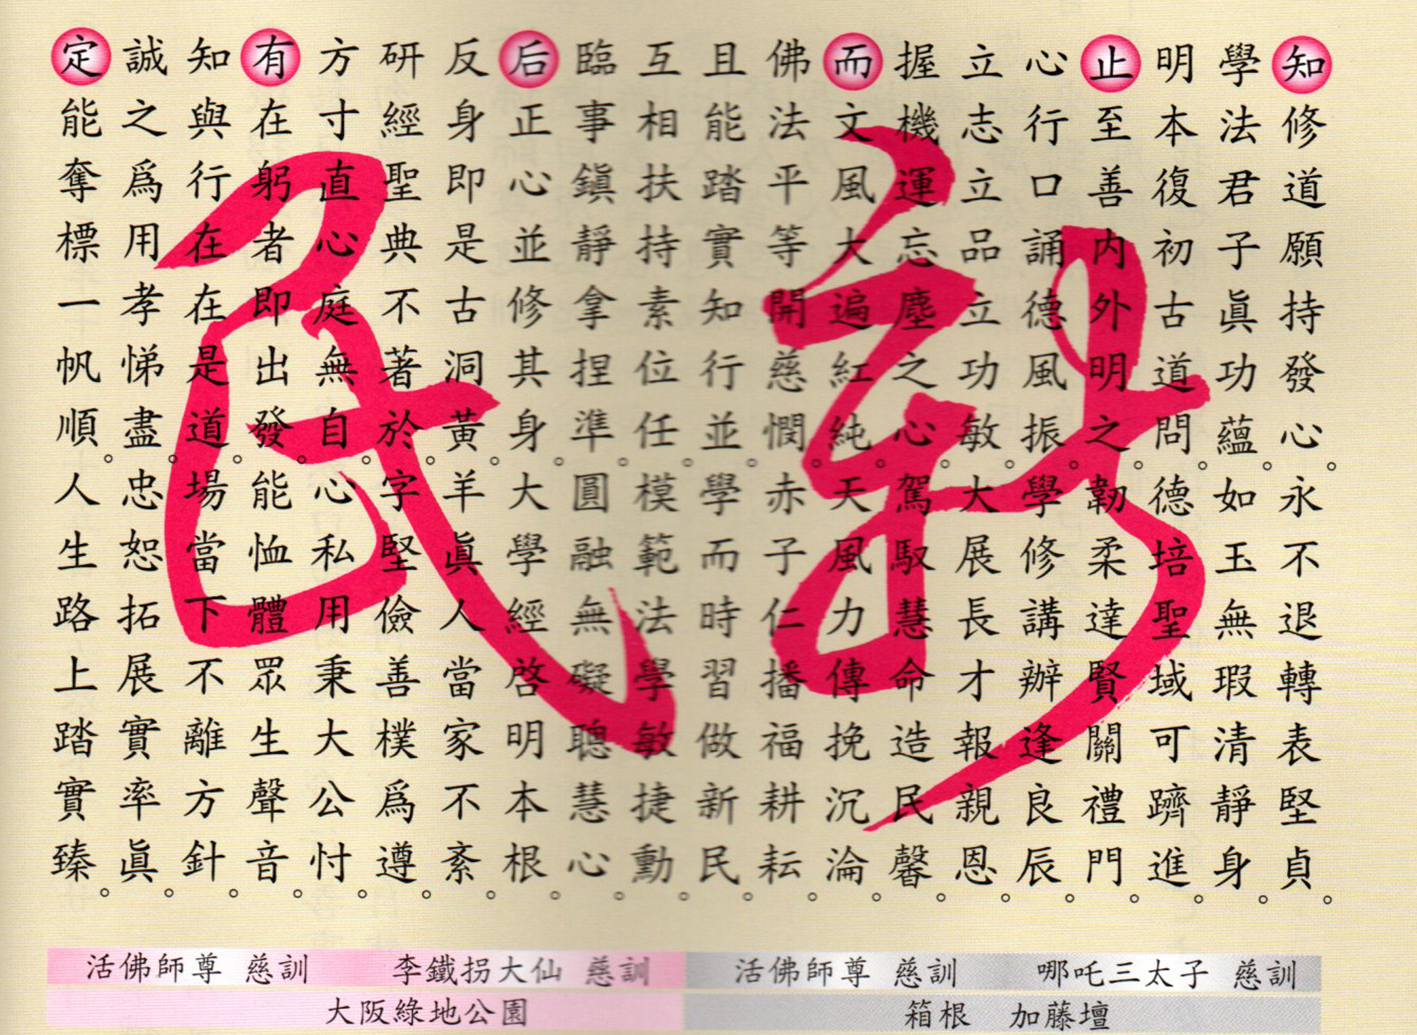 知修道願持發心。永不退轉表堅貞。
學法君子眞功蘊。如玉無瑕清靜身。
明本復初古道問。德培聖域可躋進。
止至善内外明之。韌柔達賢關禮門。
心行口誦德風振。學修講辦逢良辰。
立志立品立功敏。大展長才報親恩。
握機運忘塵之心。駕馭慧命造民馨。
而文風大遍紅純。天風力傳挽沉淪。
佛法平等開慈憫。赤子仁播福耕耘。
且能踏實知行並。學而時習做新民。
互相扶持素位任。模範法學敏捷勳。
臨事鎭靜拿捏準。圓融無礙聰慧心。
后正心並修其身。大學經啓明本根。
反身即是古洞黃。羊眞人當家不紊。
研經聖典不著於。字堅儉善樸爲遵。
方寸直心庭無自。心私用秉大公忖。
有在躬者即出發。能恤體眾生聲音。
知與行在在是道。場當下不離方針。
誠之爲用孝悌盡。忠恕拓展實率眞。
定能奪標一帆順。人生路上踏實臻。
新民
活佛師尊 慈訓 李鐵拐大仙 慈訓 活佛師尊 慈訓 哪吒三太子 慈訓
大阪綠地公園 箱根 加藤壇